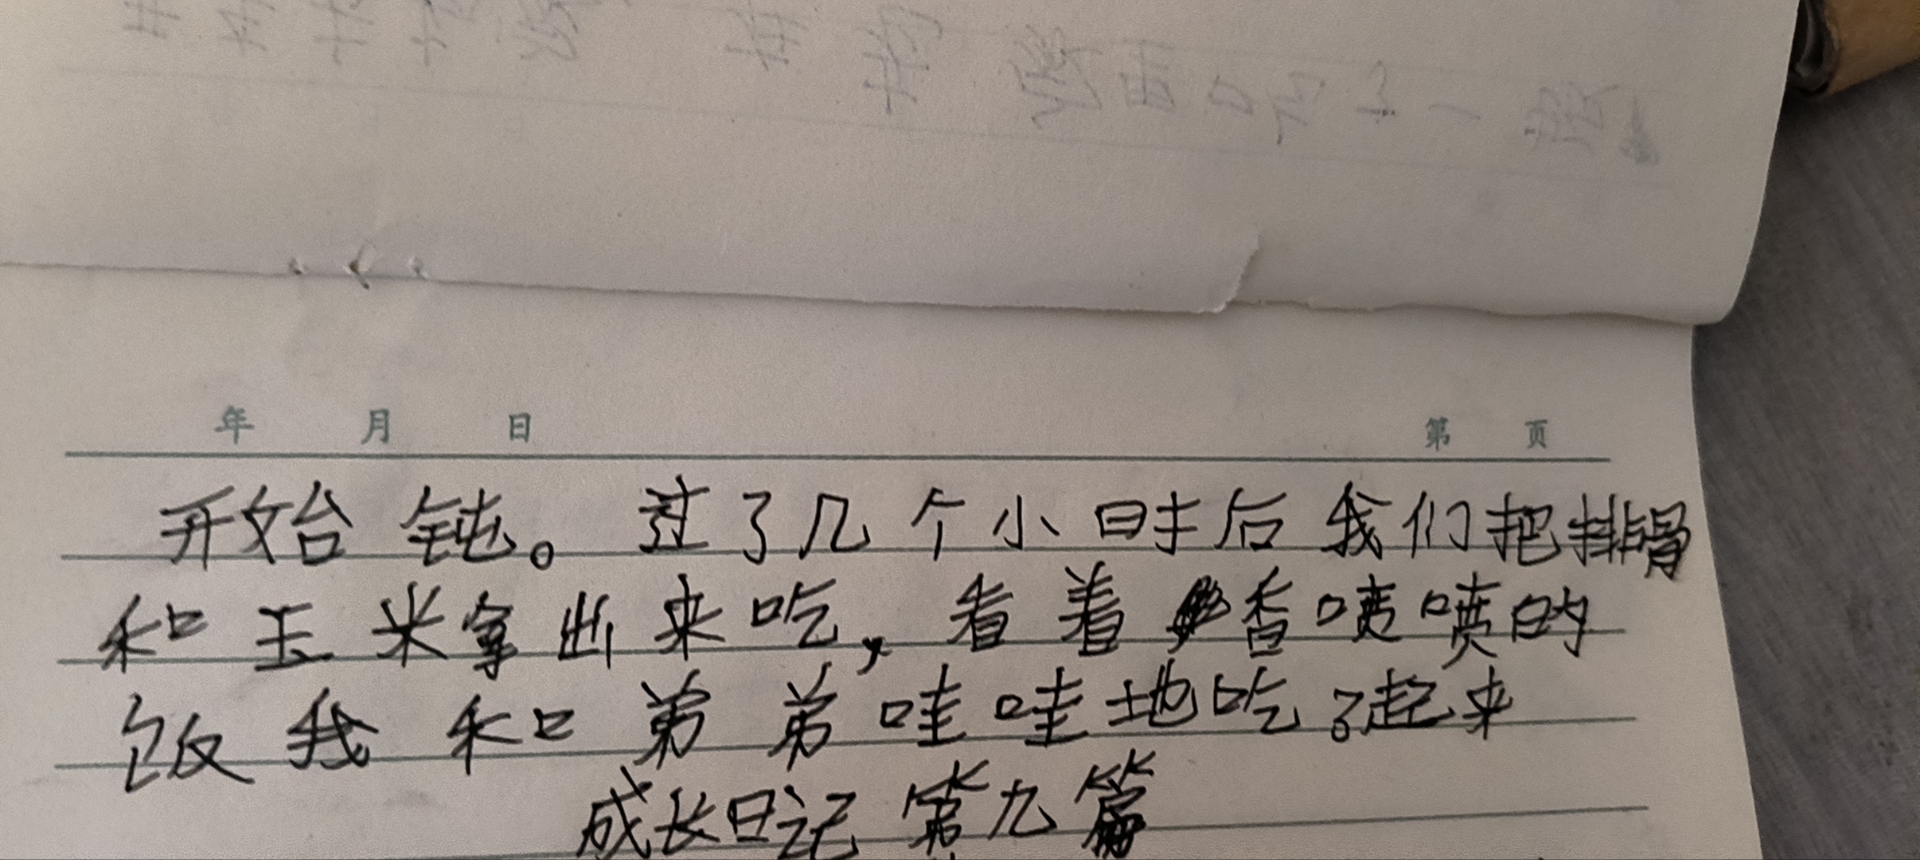 年 月 日 第 页
开始钝。过了几个小时后我们把排骨
和玉米拿出来吃,看着香喷喷的
饭我和弟弟哇哇地吃了起来
成长日记 第九篇